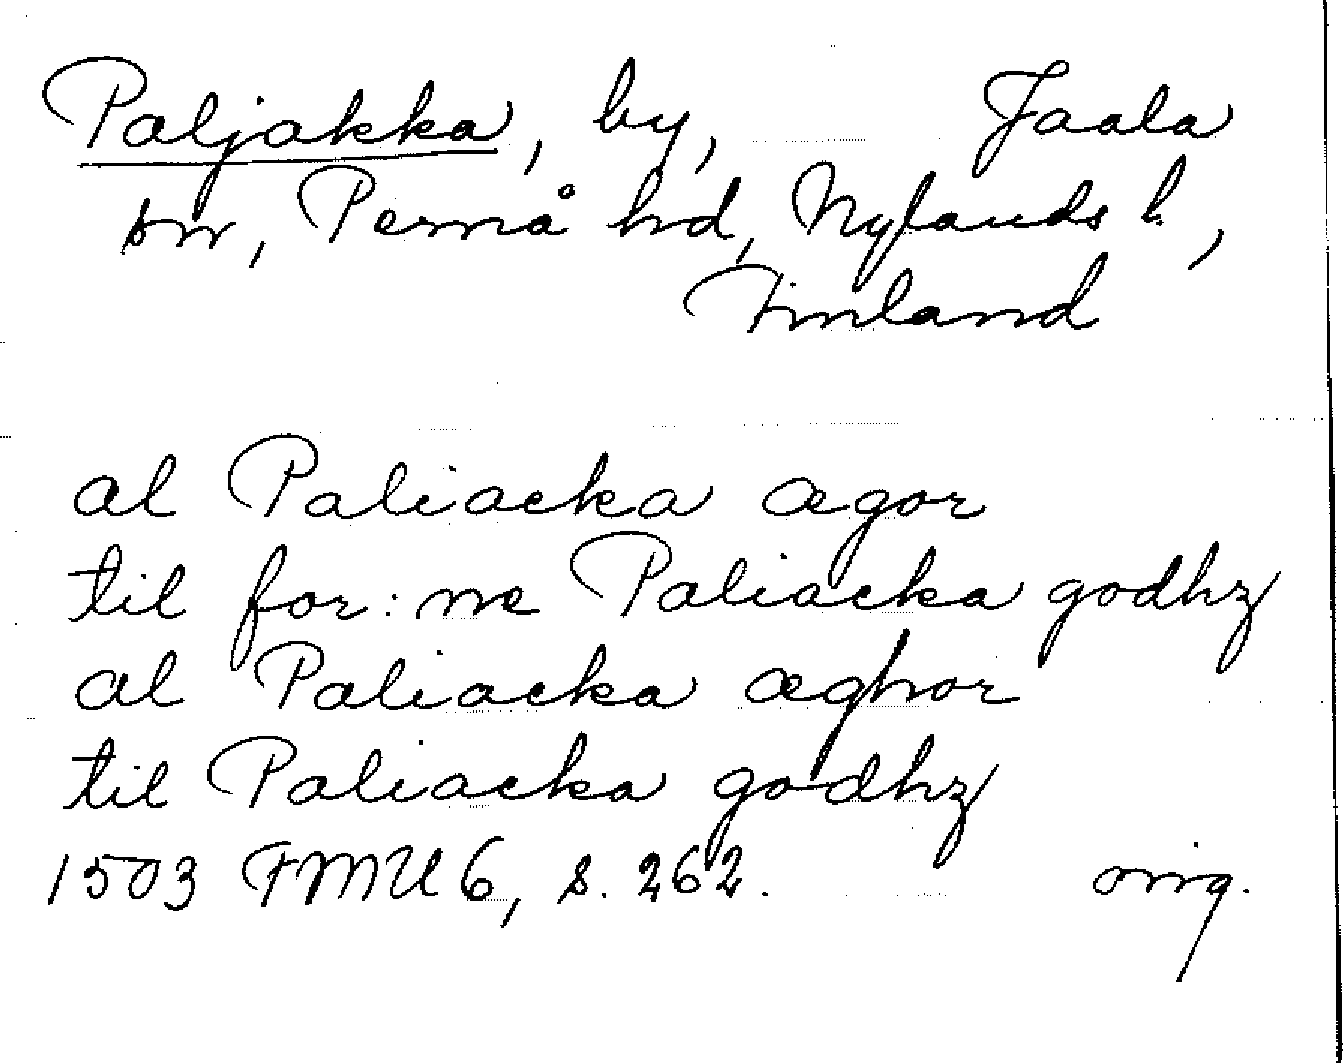 Paljakka, by, Jaala
sn, Pernå hd, Nylands l.,
Finland
al Paliacka ægor
til for: ne Paliacka godhz
al Paliacka æghor
til Paliacka godhz
1503 FMU 6, s. 262. orig.